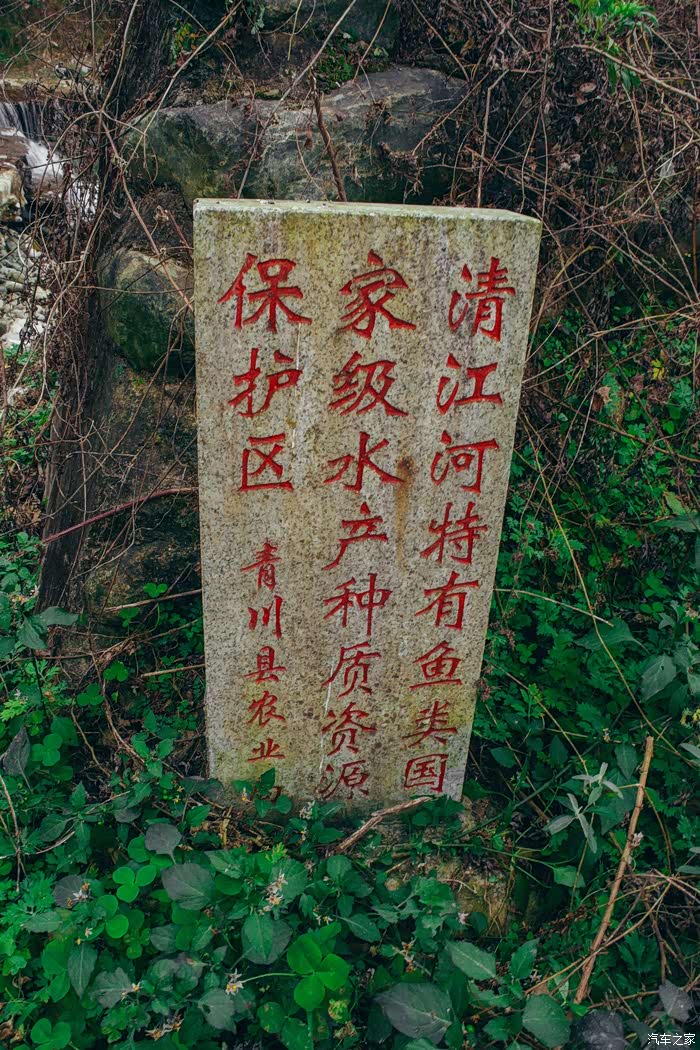 清江河特有鱼类国
家级水产种质资源
保护区
青川县农业局
汽车之家